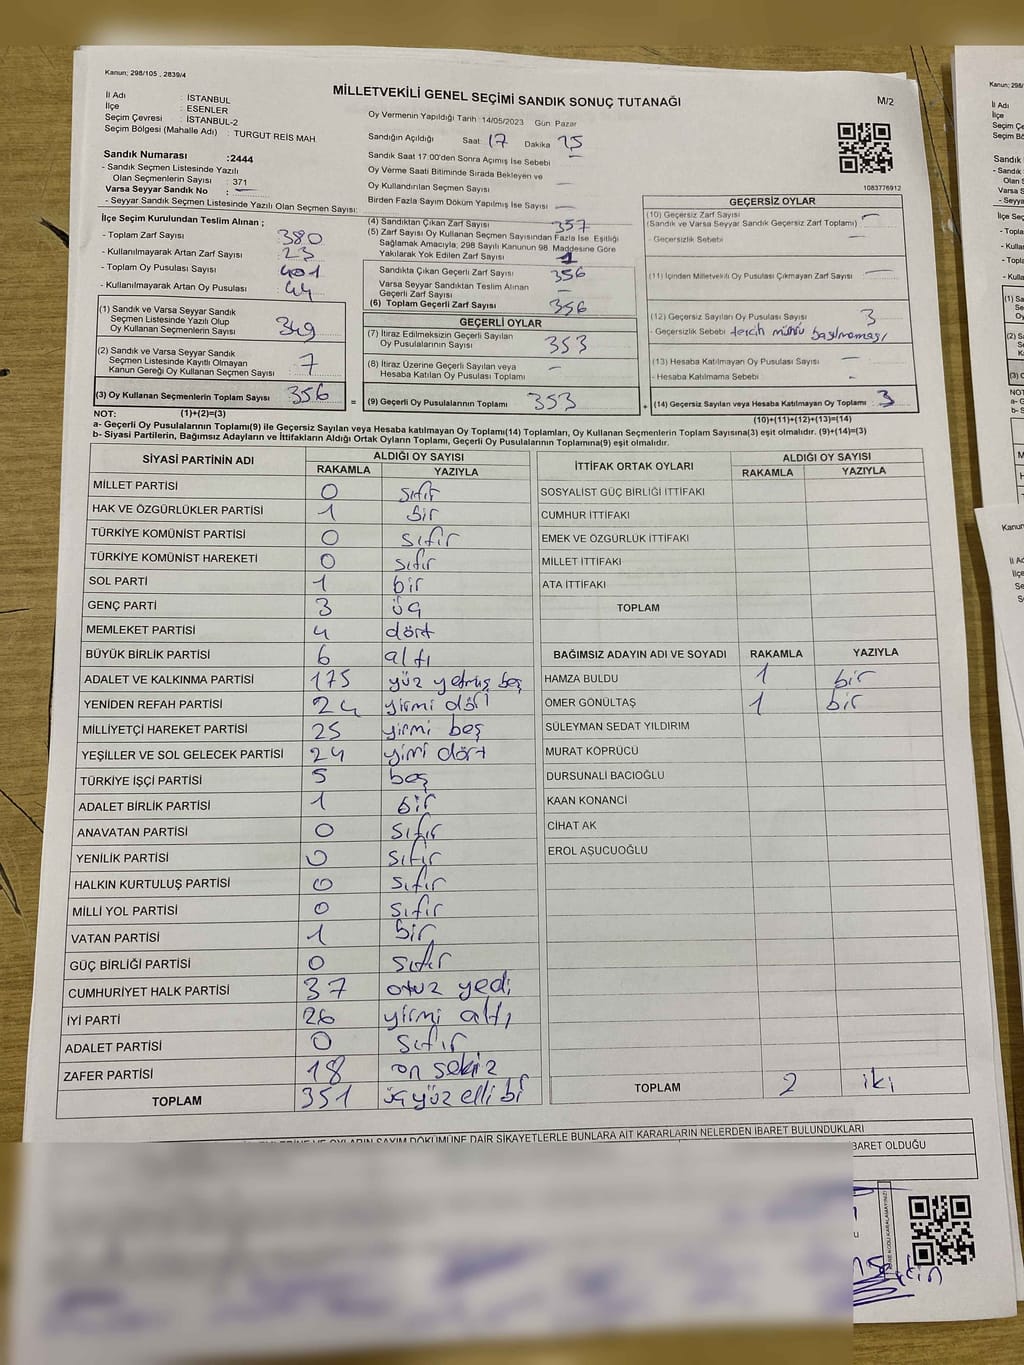 Kanun; 298/105 , 2839/4
MİLLETVEKİLİ GENEL SEÇİMİ SANDIK SONUÇ TUTANAĞI
M/2
İl Adı : İSTANBUL
İlçe : ESENLER
Seçim Çevresi : İSTANBUL-2
Seçim Bölgesi (Mahalle Adı) : TURGUT REİS MAH.
Oy Vermenin Yapıldığı Tarih 14/05/2023 Gün Pazar
Sandığın Açıldığı Saat 17 Dakika 25
Sandık Saat 17:00'den Sonra Açımış İse Sebebi –
Oy Verme Saati Bitiminde Sırada Bekleyen ve
Oy Kullandırılan Seçmen Sayısı –
Birden Fazla Sayım Döküm Yapılmış İse Sayısı –
1083776912
Sandık Numarası :2444
- Sandık Seçmen Listesinde Yazılı
Olan Seçmenlerin Sayısı : 371
Varsa Seyyar Sandık No : –
- Seyyar Seçmen Listesinde Yazılı Olan Seçmen Sayısı:
İlçe Seçim Kurulundan Teslim Alınan ;
- Toplam Zarf Sayısı 380
- Kullanılmayarak Artan Zarf Sayısı 23
- Toplam Oy Pusulası Sayısı 401
- Kullanılmayarak Artan Oy Pusulası 44
(1) Sandık ve Varsa Seyyar Sandık
Seçmen Listesinde Yazılı Olup
Oy Kullanan Seçmenlerin Sayısı 349
(2) Sandık ve Varsa Seyyar Sandık
Seçmen Listesinde Kayıtlı Olmayan
Kanun Gereği Oy Kullanan Seçmen Sayısı 7
(3) Oy Kullanan Seçmenlerin Toplam Sayısı 356 =
(4) Sandıktan Çıkan Zarf Sayısı 357
(5) Zarf Sayısı Oy Kullanan Seçmen Sayısından Fazla İse, Eşitliği
Sağlamak Amacıyla; 298 Sayılı Kanunun 98. Maddesine Göre
Yakılarak Yok Edilen Zarf Sayısı 1
Sandıkta Çıkan Geçerli Zarf Sayısı 356
Varsa Seyyar Sandıktan Teslim Alınan
Geçerli Zarf Sayısı –
(6) Toplam Geçerli Zarf Sayısı 356
GEÇERLİ OYLAR
(7) İtiraz Edilmeksizin Geçerli Sayılan
Oy Pusulalarının Sayısı 353
(8) İtiraz Üzerine Geçerli Sayılan veya
Hesaba Katılan Oy Pusulası Toplamı –
(9) Geçerli Oy Pusulalarının Toplamı 353 +
GEÇERSİZ OYLAR
(10) Geçersiz Zarf Sayısı –
(Sandık ve Varsa Seyyar Sandık Geçersiz Zarf Toplamı)
- Geçersizlik Sebebi –
(11) İçinden Milletvekili Oy Pusulası Çıkmayan Zarf Sayısı –
(12) Geçersiz Sayılan Oy Pusulası Sayısı 3
- Geçersizlik Sebebi tercih mührü basılmaması
(13) Hesaba Katılmayan Oy Pusulası Sayısı –
- Hesaba Katılmama Sebebi –
(14) Geçersiz Sayılan veya Hesaba Katılmayan Oy Toplamı 3
NOT: (1)+(2)=(3)
(10)+(11)+(12)+(13)=(14)
a- Geçerli Oy Pusulalarının Toplamı(9) ile Geçersiz Sayılan veya Hesaba Katılmayan Oy Toplamı(14) Toplamları, Oy Kullanan Seçmenlerin Toplam Sayısına(3) eşit olmalıdır. (9)+(14)=(3)
b- Siyasi Partilerin, Bağımsız Adayların ve İttifakların Aldığı Ortak Oyların Toplamı, Geçerli Oy Pusulalarının Toplamına(9) eşit olmalıdır.
SİYASİ PARTİNİN ADI ALDIĞI OY SAYISI
RAKAMLA YAZIYLA
MİLLET PARTİSİ 0 sıfır
HAK VE ÖZGÜRLÜKLER PARTİSİ 1 bir
TÜRKİYE KOMÜNİST PARTİSİ 0 sıfır
TÜRKİYE KOMÜNİST HAREKETİ 0 sıfır
SOL PARTİ 1 bir
GENÇ PARTİ 3 üç
MEMLEKET PARTİSİ 4 dört
BÜYÜK BİRLİK PARTİSİ 6 altı
ADALET VE KALKINMA PARTİSİ 175 yüz yetmiş beş
YENİDEN REFAH PARTİSİ 24 yirmi dört
MİLLİYETÇİ HAREKET PARTİSİ 25 yirmi beş
YEŞİLLER VE SOL GELECEK PARTİSİ 24 yirmi dört
TÜRKİYE İŞÇİ PARTİSİ 5 beş
ADALET BİRLİK PARTİSİ 1 bir
ANAVATAN PARTİSİ 0 sıfır
YENİLİK PARTİSİ 0 sıfır
HALKIN KURTULUŞ PARTİSİ 0 sıfır
MİLLİ YOL PARTİSİ 0 sıfır
VATAN PARTİSİ 1 bir
GÜÇ BİRLİĞİ PARTİSİ 0 sıfır
CUMHURİYET HALK PARTİSİ 37 otuz yedi
İYİ PARTİ 26 yirmi altı
ADALET PARTİSİ 0 sıfır
ZAFER PARTİSİ 18 on sekiz
TOPLAM 351 üç yüz elli bi
İTTİFAK ORTAK OYLARI ALDIĞI OY SAYISI
RAKAMLA YAZIYLA
SOSYALİST GÜÇ BİRLİĞİ İTTİFAKI
CUMHUR İTTİFAKI
EMEK VE ÖZGÜRLÜK İTTİFAKI
MİLLET İTTİFAKI
ATA İTTİFAKI
TOPLAM
BAĞIMSIZ ADAYIN ADI VE SOYADI RAKAMLA YAZIYLA
HAMZA BULDU 1 bir
ÖMER GÖNÜLTAŞ 1 bir
SÜLEYMAN SEDAT YILDIRIM
MURAT KÖPRÜCÜ
DURSUNALİ BACIOĞLU
KAAN KONANCİ
CİHAT AK
EROL AŞUCUOĞLU
TOPLAM 2 iki
OYLARIN SAYIM DÖKÜMÜNE DAİR ŞİKAYETLERLE BUNLARA AİT KARARLARIN NELERDEN İBARET BULUNDUKLARI
BARET OLDUĞU